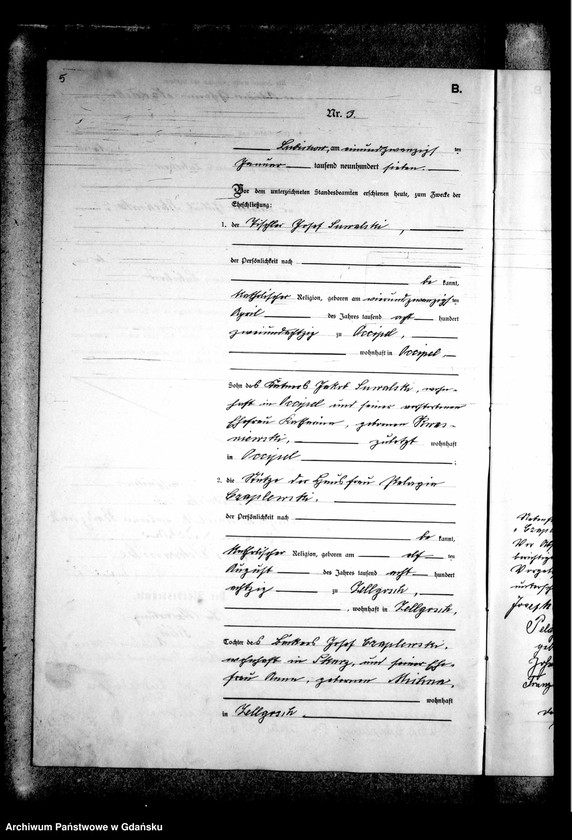 5
B.
Nr. 3.
Lubichow, am einundzwanzigs ten
Januar tausend neunhundert sieben.
Vor dem unterzeichneten Standesbeamten erschienen heute, zum Zwecke der
Eheschließung:
1. der Tischler Josef Suwalski,
der Persönlichkeit nach
be kannt,
katholischer Religion, geboren am vierundzwanzigs ten
April des Jahres tausend acht hundert
zweiundachtzig zu Occipel,
wohnhaft in Occipel
Sohn des Käthners Jakob Suwalski, wohn-
haft in Occipel und seiner verstorbenen
Ehefrau Katharina, geborenen
zuletzt wohnhaft
in Occipel ;
2. die Stütze der Hausfrau Pelagia
Czaplewski.
der Persönlichkeit nach
be kannt,
katholischer Religion, geboren am elf ten
August des Jahres tausend acht hundert
achtzig zu Zellgosch,
, wohnhaft in Zellgosch,
Tochter des Josef Czaplewski,
wohnhaft in Skurz, und seiner Ehe-
frau Anna, geborenen
wohnhaft
in Zellgosch.
Vor
Josef
Franz
Archiwum Państwowe w Gdańsku